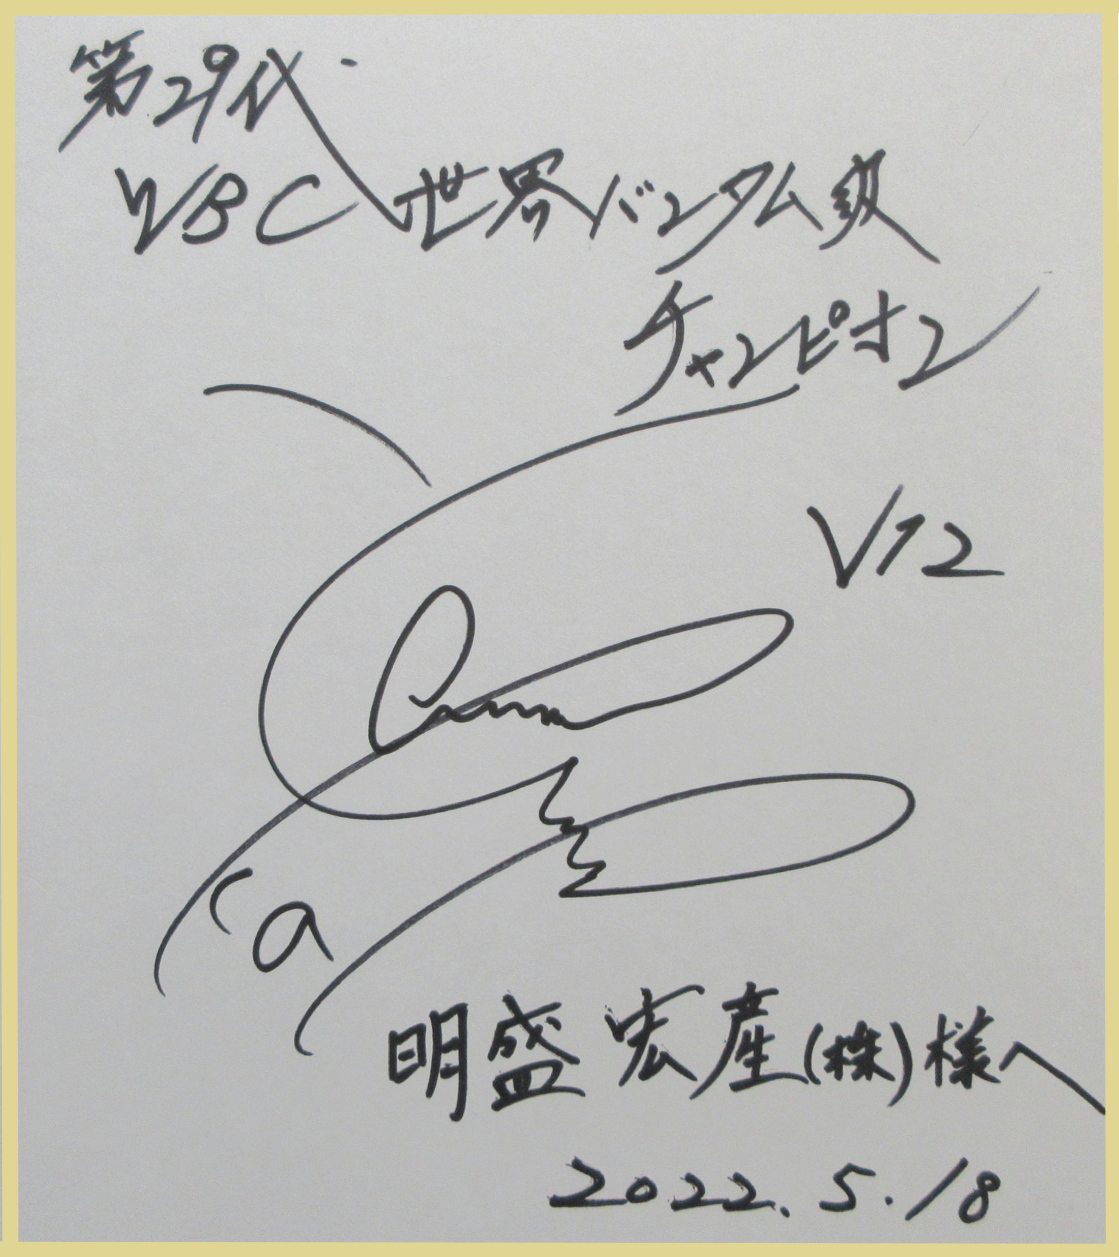 第29代
WBC世界バンタム級
チャンピオン
V12
明盛宏産(株)様へ
2022.5.18